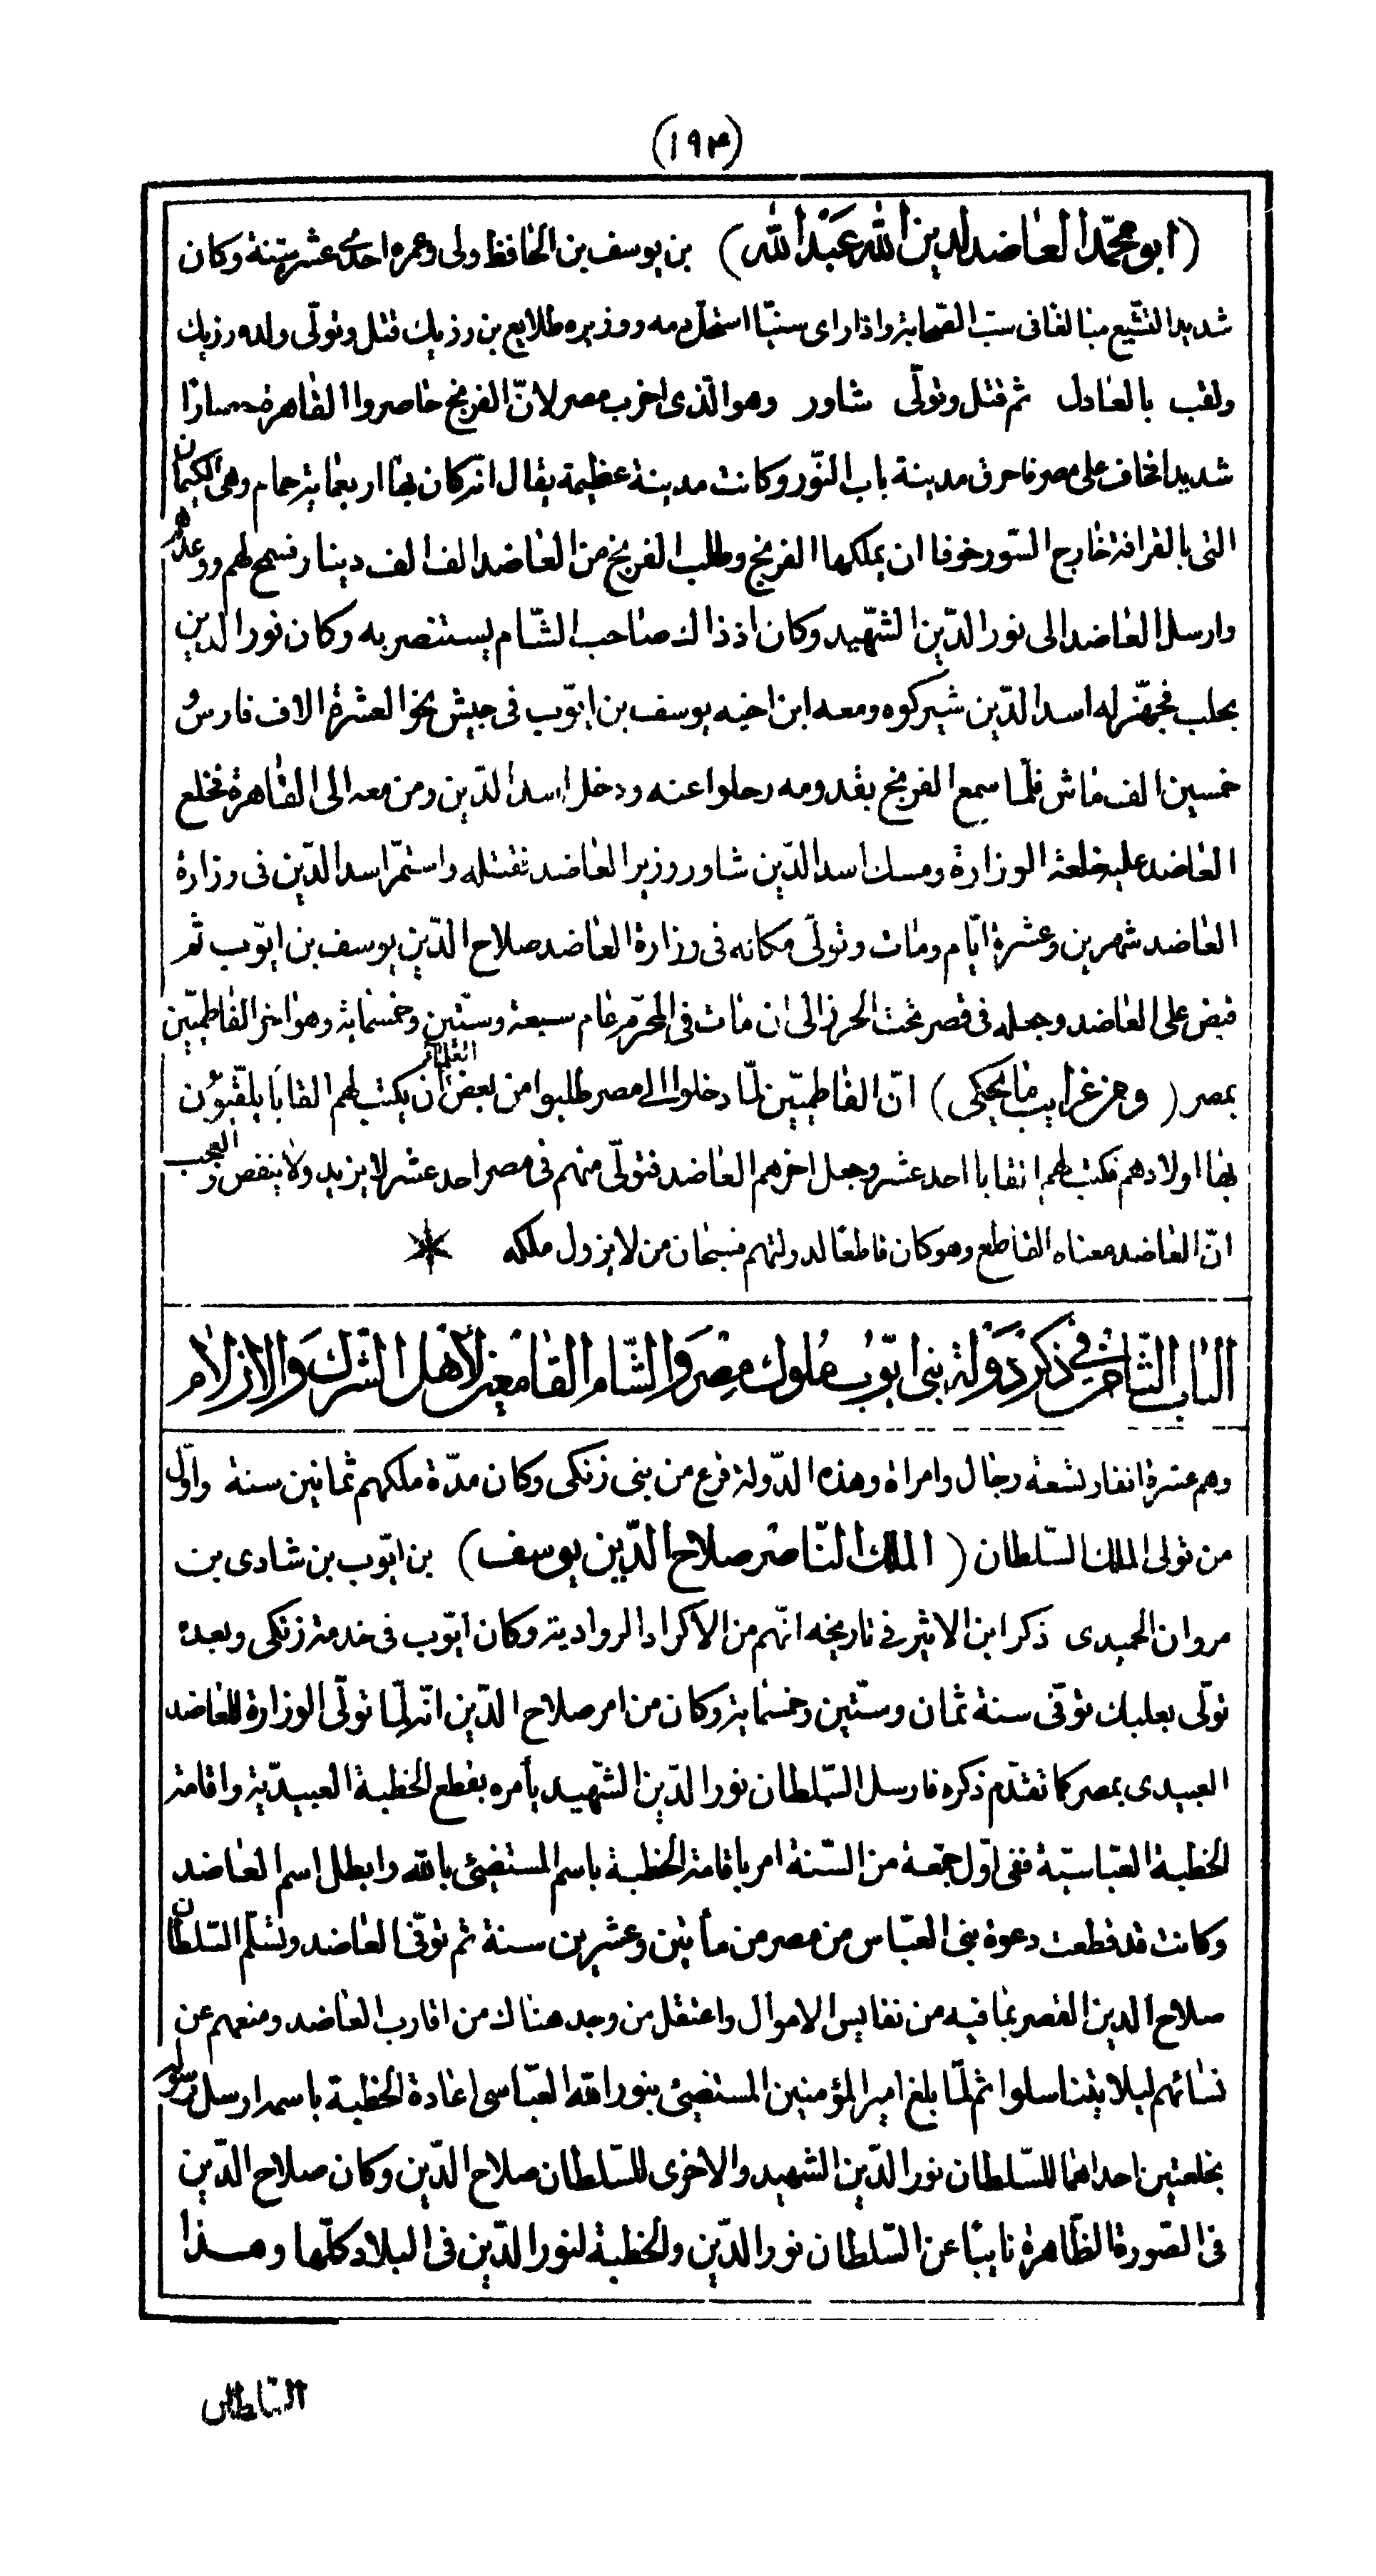 (١٩٣)
(ابو محمّد العاضد لدين الله عبد الله) بن يوسف بن الحافظ ولى وعمره احدى عشر سنة وكان
شديد التشيع مبالغا فى سبّ الصّحابة واذا راى سنيّا استحلّ دمه ووزيره طلايع بن رزيك قتل وتولّى ولده رزيك
ولقب بالعادل ثم قتل وتولّى شاور وهو الّذى اخرب مصر لانّ الفرنج حاصروا القاهرة حصارًا
شديدا فخاف على مصر فاحرق مدينة باب النّور وكانت مدينة عظيمة يقال انّه كان بها اربعماية حمام وهى الكيمان
التى بالقرافة خارج السّور خوفا ان يملكها الفرنج وطلب الفرنج من العاضد الف الف دينار فسمح لهم ووعدهم
وارسل العاضد الى نور الدّين الشهّيد وكان اذ ذاك صاحب الشّام يستنصر به وكان نور الدين
بحلب فجهّز له اسد الدّين شيركوه ومعه ابن اخيه يوسف بن ايّوب فى جيش نحو العشرة الاف فارس
خمسين الف ماش فلمّا سمع الفرنج بقدومه رحلوا عنه ودخل اسد الدّين ومن معه الى القاهرة فخلع
العاضد عليه خلعة الوزارة ومسك اسد الدّين شاور وزير العاضد فقتله واستمّر اسد الدّين فى وزارة
العاضد شهرين وعشرة ايّام ومات وتولّى مكانه فى وزارة العاضد صلاح الدّين يوسف بن ايّوب ثم
قبض على العاضد وجعله فى قصر تحت الحرز الى ان مات فى المحرّم عام سبعة وستّين وخمسماية وهو اخر الفاطميّين
بمصر (ومن غرايب ما يحكى) انّ الفاطميّين لمّا دخلوا الى مصر طلبوا من بعض العلماء ان يكتب لهم القابًا يلقّبون
بها اولادهم فكتب لهم القابا احد عشر وجعل اخرهم العاضد فتولّى منهم فى مصر احد عشر لا يزيد ولا ينقص والعجب
انّ العاضد معناه القاطع وهو كان قاطعًا لدولتهم فسبحان من لا يزول ملكه
الباب الثّامن فى ذكر دولة بنى ايّوب ملوك مصر والشّام القامعين لاهل الشّرك والازلام
وهم عشرة انفار تسعة رجال وامراة وهذه الدّولة فرع من بنى زنكى وكان مدّة ملكهم ثمانين سنة واوّل
من تولى الملك السّلطان (الملك النّاصر صلاح الدّين يوسف) بن ايّوب بن شادى بن
مروان الحميدى ذكر ابن الاثير فى تاريخه انّهم من الاكراد الروادية وكان ايّوب فى خدمة زنكى وبعده
تولّى بعلبك توفّى سنة ثمان وستّين وخمسماية وكان من امر صلاح الدّين انّه لمّا تولّى الوزارة للعاضد
العبيدى بمصر كما تقدّم ذكره فارسل السّلطان نور الدّين الشّهيد يأمره بقطع الخطبة العبيديّة واقامة
الخطبة العبّاسيّة ففى اوّل جمعة من السّنة امر باقامة الخطبة باسم المستضئ بالله وابطل اسم العاضد
وكانت قد قطعت دعوة بنى العبّاس من مصر من مأتين وعشرين سنة ثم توفّى العاضد وتسلّم السّلطان
صلاح الدين القصر بما فيه من نفايس الاموال واعتقل من وجد هناك من اقارب العاضد ومنعهم عن
نسائهم ليلا يتناسلوا ثم لمّا بلغ امير المؤمنين المستضيئ بنور الله العبّاسى اعادة الخطبة باسمه ارسل رسوله
بخلعتين احداهما للسّلطان نور الدّين الشهيد والاخرى للسّلطان صلاح الدّين وكان صلاح الدّين
فى الصّورة الظّاهرة نايبًا عن السّلطان نور الدّين والخطبة لنور الدّين فى البلاد كلّها وهذا
السّلطان